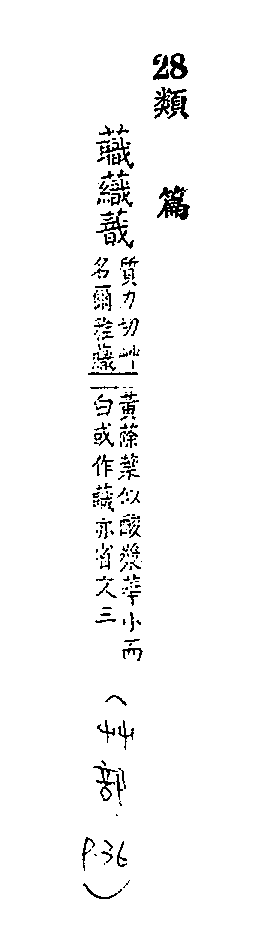 28
類 篇
蘵
質力切艸
名爾雅蘵
黃蒢葉似酸漿華小而
白或作亦省文三
(艸部 P.36)